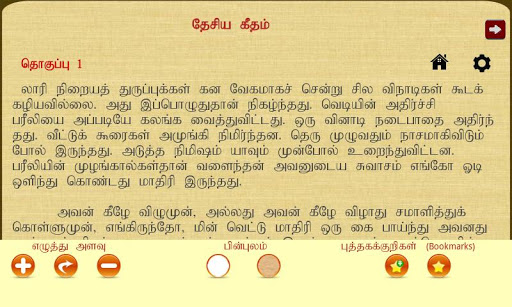 தேசிய கீதம்
தொகுப்பு 1
லாரி நிறையத் துருப்புக்கள் கன வேகமாகச் சென்று சில விநாடிகள் கூடக்
கழியவில்லை. அது இப்பொழுதுதான் நிகழ்ந்தது. வெடியின் அதிர்ச்சி
பரீலியை அப்படியே கலங்க வைத்துவிட்டது. ஒரு வினாடி நடைபாதை அதிர்ந்
தது. வீட்டுக் கூரைகள் அமுங்கி நிமிர்ந்தன. தெரு முழுவதும் நாசமாகிவிடும்
போல் இருந்தது. அடுத்த நிமிஷம் யாவும் முன்போல் உறைந்துவிட்டன.
பரீலியின் முழங்கால்கள்தான் வளைந்தன் அவனுடைய சுவாசம் எங்கோ ஓடி
ஒளிந்து கொண்டது மாதிரி இருந்தது.
அவன் கீழே விழுமுன், அல்லது அவன் கீழே விழாது சமாளித்துக்
கொள்ளுமுன், எங்கிருந்தோ, மின் வெட்டு மாதிரி ஒரு கை பாய்ந்து அவனது
எழுத்து அளவு
பின்புலம்
புத்தகக்குறிகள் (Bookmarks)